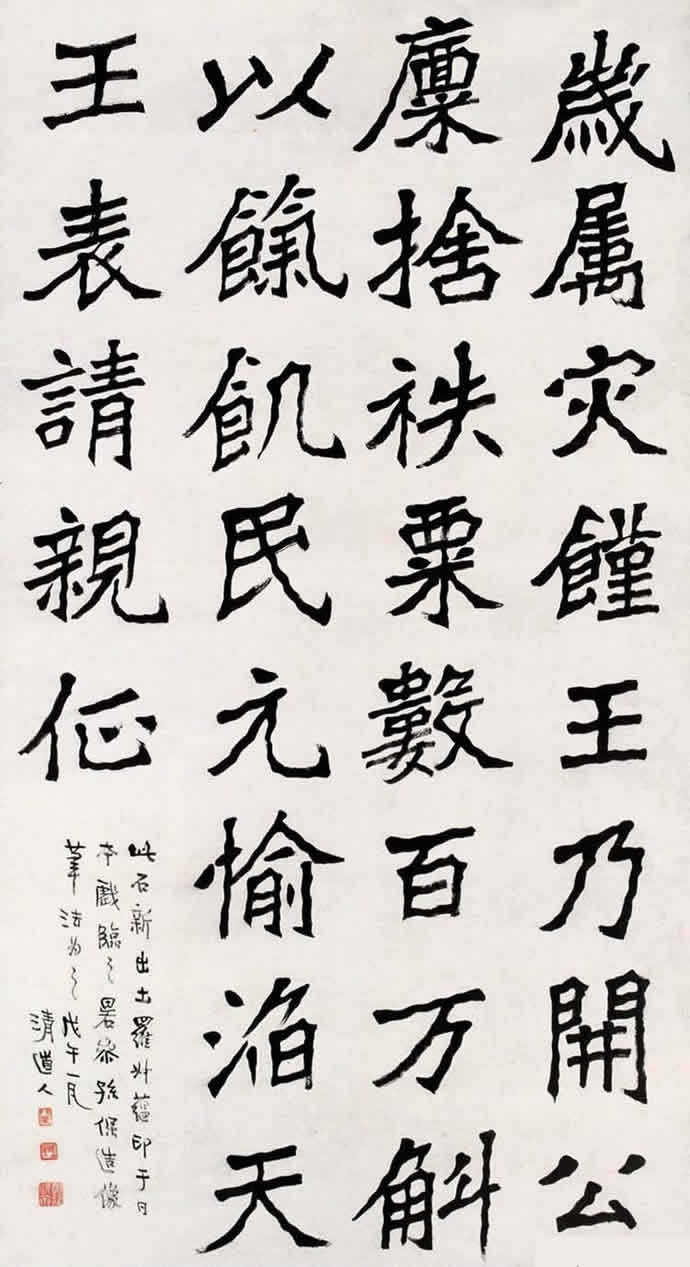 歲属灾饉王乃開公
廩捨袟粟數百万斛
以餼飢民元愉滔天
王表請親征
此石新出土羅叔蘊印于日
本戲臨之畧參孫保造像
筆法为之戊午一月
清道人